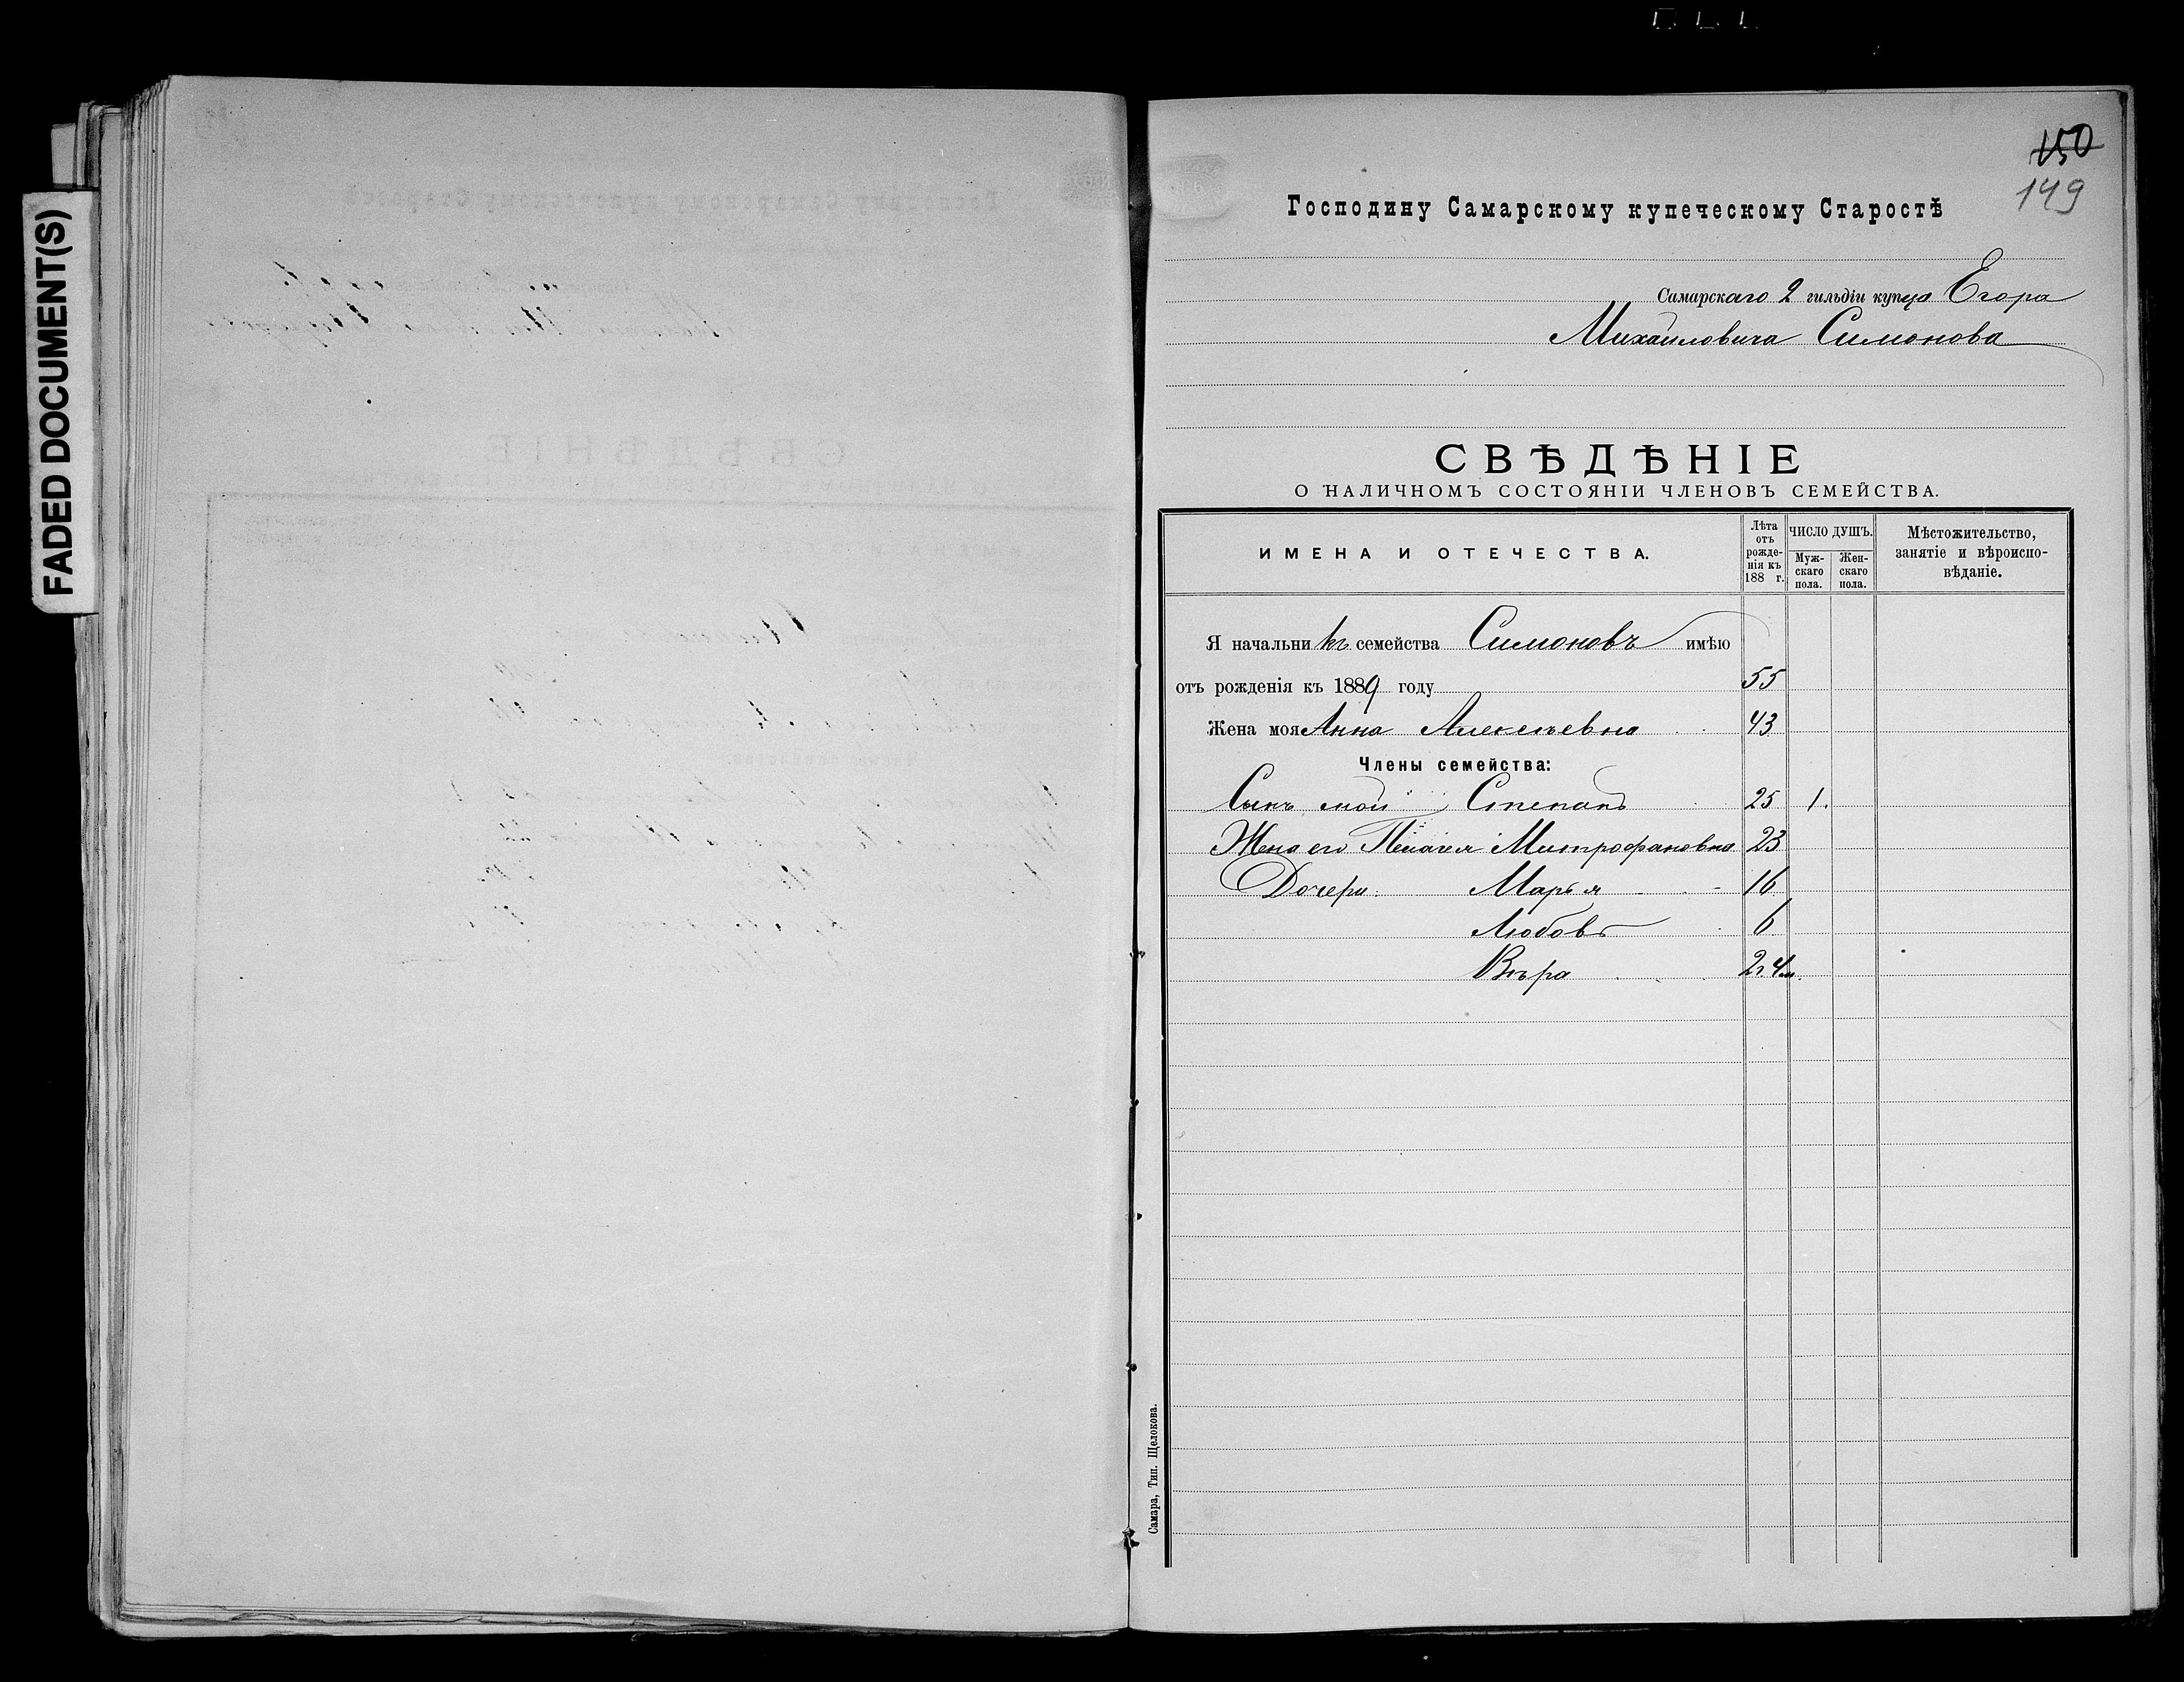 FADED DOCUMENT(S)
150
149
Господину Самарскому купеческому Старостѣ
Самарскаго 2 гильдіи купца Егора
Михайловича Симонова
СВѢДѢНІЕ
О НАЛИЧНОМЪ СОСТОЯНІИ ЧЛЕНОВЪ СЕМЕЙСТВА.
ИМЕНА И ОТЕЧЕСТВА.
Лѣта отъ рожде-нія къ 188 г.
ЧИСЛО ДУШЪ.
Муж-скаго пола.
Жен-скаго пола.
Мѣстожительство, занятіе и вѣроиспо-вѣданіе.
Я начальникъ семейства Симоновъ имѣю
отъ рожденія къ 1889 году 55
Жена моя Анна Алексѣевна 43
Члены семейства:
Сынъ мой Степанъ 25 1.
Жена его Пелагея Митрофановна 23
Дочери: Марья 16
Любовь 6
Вѣра 2г. 4м.
Самара, Тип. Щелокова.